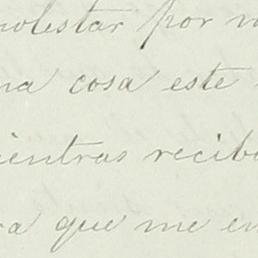 molestar por
cosa este
mientras recib
que me en